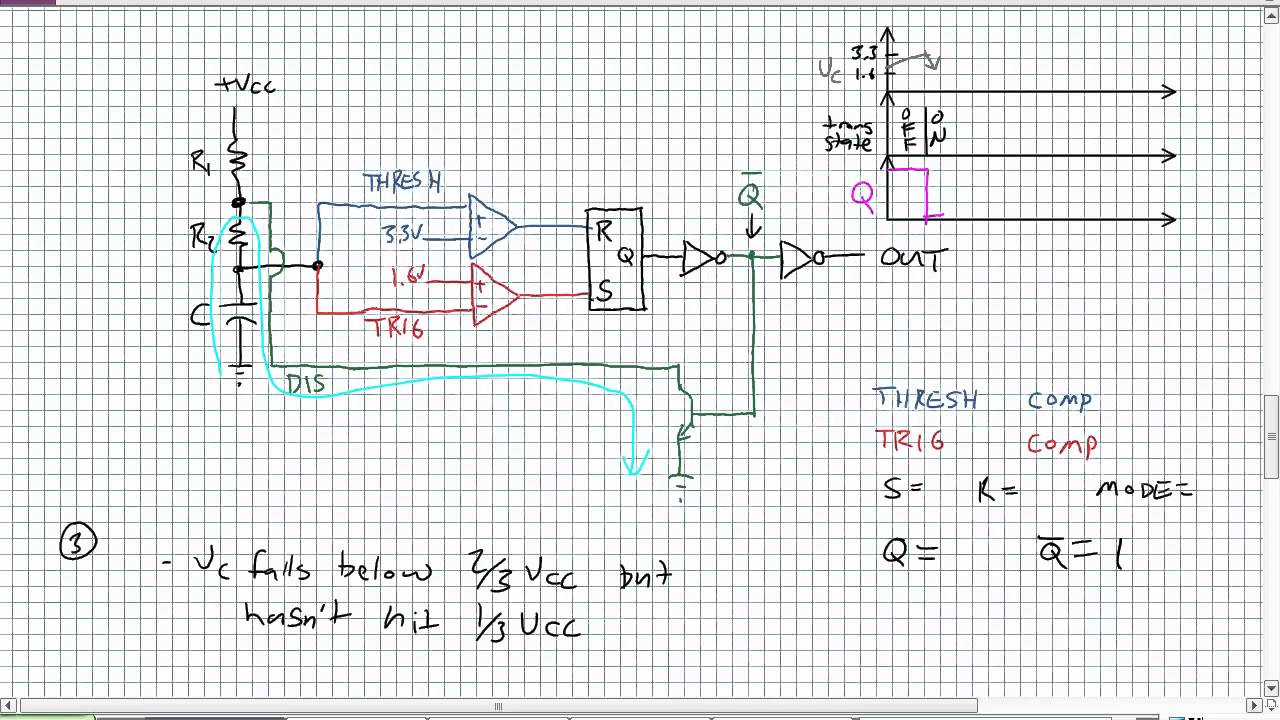 +VCC
R1
R2
C
THRESH
3.3V
1.6V
TRIG
DIS
R
Q
S
Q̅
OUT
3.3
VC 1.6
trans state
OFF ON
Q
THRESH comp
TRIG comp
S= R= MODE=
Q= Q̅=1
3
- VC falls below 2/3 VCC but
hasn't hit 1/3 VCC